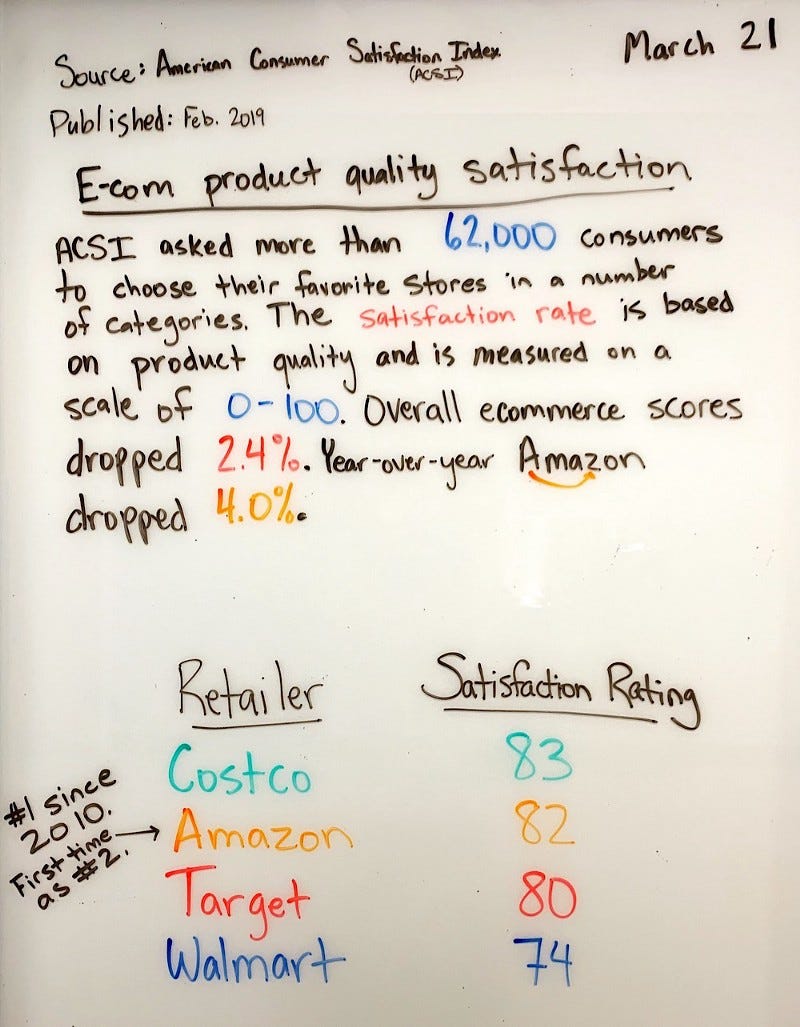 Source: American Consumer Satisfaction Index
(ACSI)
March 21
Published: Feb. 2019
E-com product quality satisfaction
ACSI asked more than 62,000 consumers
to choose their favorite stores in a number
of categories. The satisfaction rate is based
on product quality and is measured on a
scale of 0-100. Overall ecommerce scores
dropped 2.4%. Year-over-year Amazon
dropped 4.0%.
Retailer Satisfaction Rating
Costco 83
#1 since
2010.
First time
as #2.
Amazon 82
Target 80
Walmart 74